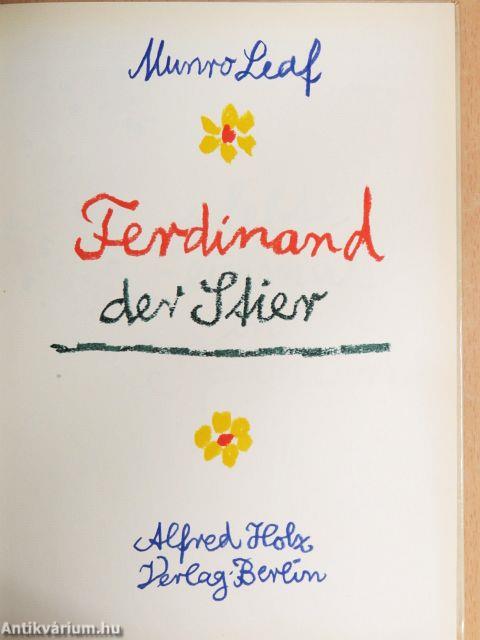 Munro Leaf
Ferdinand
der Stier
Alfred Holz
Verlag·Berlin
Antikvárium.hu